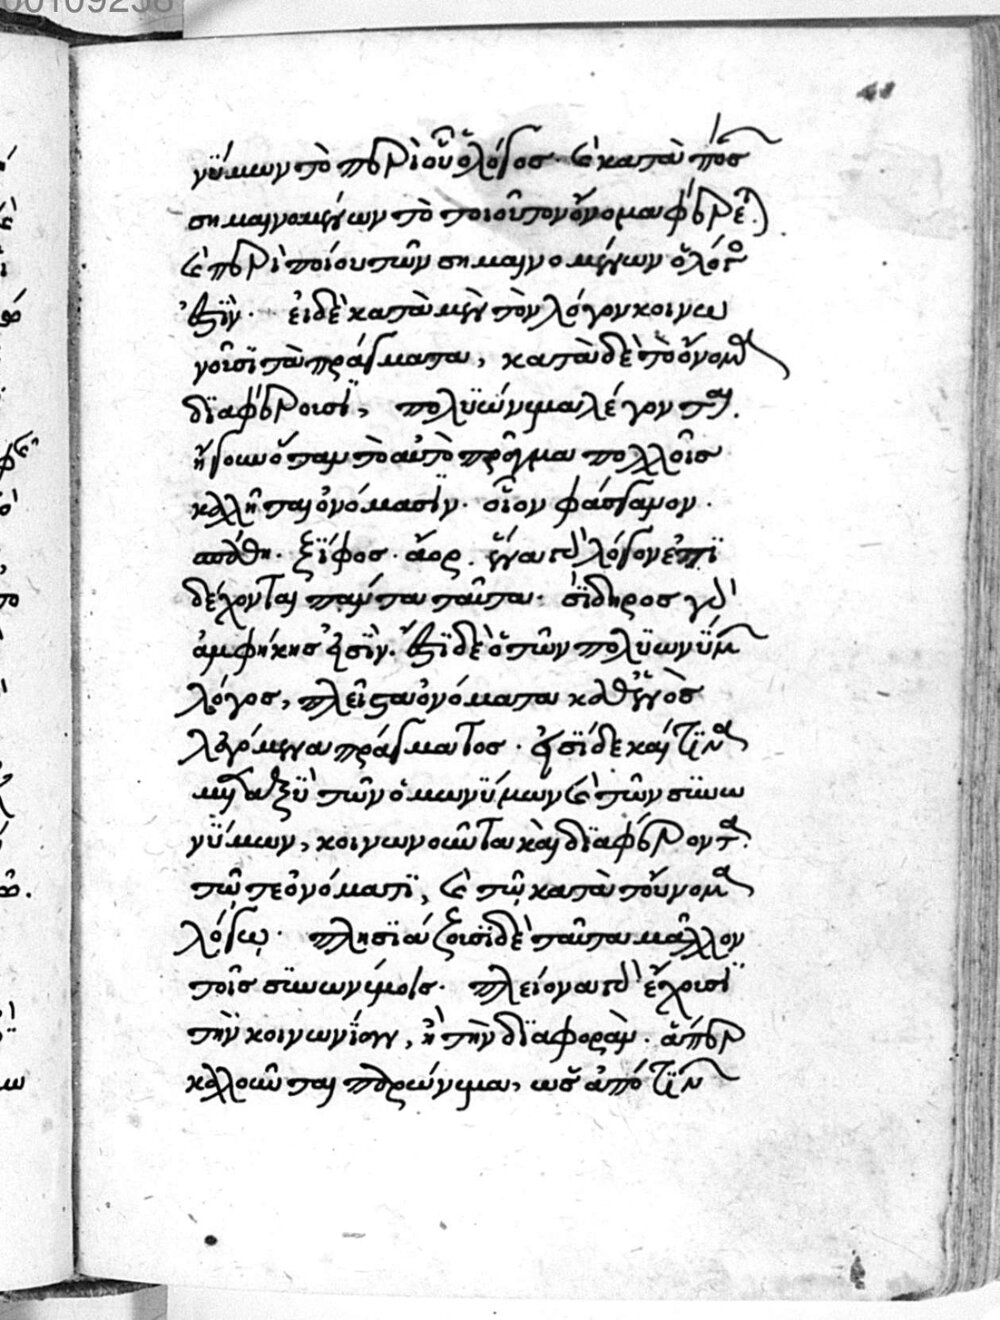 00109258
νύμων τὸ περὶ οὗ ὁ λόγος· καὶ κατὰ πόσ
σημαινομένων τὸ τοιοῦτον ὄνομα φέρετ.
καὶ περὶ ποίου τῶν σημαινομένων ὁ λόγος
ἐστϊν· εἰ δὲ κατὰ μὲν τὸν λόγον κοινω
νοῦσϊ τὰ πράγματα, κατὰ δὲ τὸ ὄνομα
δϊαφέρουσϊ, πολϋώνυμα λέγονται.
ἤγουν ὅταν τὸ αὐτὸ πρᾶγμα πολλοῖς
καλῆται ὀνόμασϊν· οἷον φάσγανον·
σπάθη· ξΐφος· ἄορ. ἕνα γὰρ λόγον ἐπϊ
δέχονται πάντα ταῦτα· σΐδηρος γὰρ
ἀμφήκης ἐστϊν. ἔστϊ δὲ ὁ τῶν πολϋωνύμων
λόγος, πλεῖστα ὀνόματα καθ' ἑνὸς
λεγόμενα πράγματος· εἰσϊ δὲ καί τϊνα
μεταξϋ τῶν ὁμωνύμων καὶ τῶν σϋνω
νύμων, κοινωνοῦντα καὶ δϊαφέροντα
τῷ τε ὀνόματϊ, καὶ τῷ κατὰ τοὔνομα
λόγῳ· πλησϊάζουσϊ δὲ ταῦτα μᾶλλον
τοῖς σϋνωνύμοις· πλείονα γὰρ ἔχουσϊ
τὴν κοινωνΐαν, ἢ τὴν δϊαφοράν· ἅπερ
καλοῦνται παρώνυμα, ὡς ἀπό τϊν